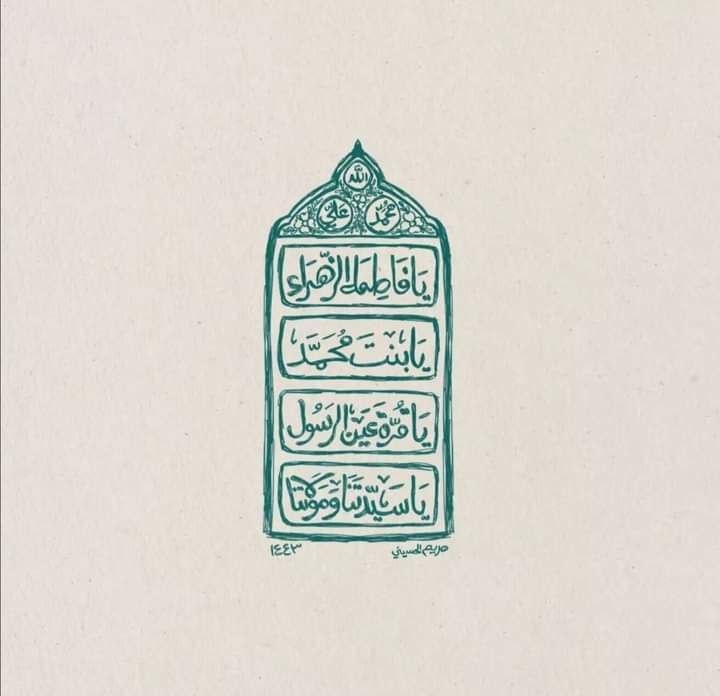 الله
محمد علي
يَا فَاطِمَة الزَّهرَاء
يَا بنتَ مُحَمَّد
يَا قُرَّة عَين الرَسُول
يَا سَيِّدَتَنَا وَمَولَاتنَا
مريم الحسيني ١٤٤٣